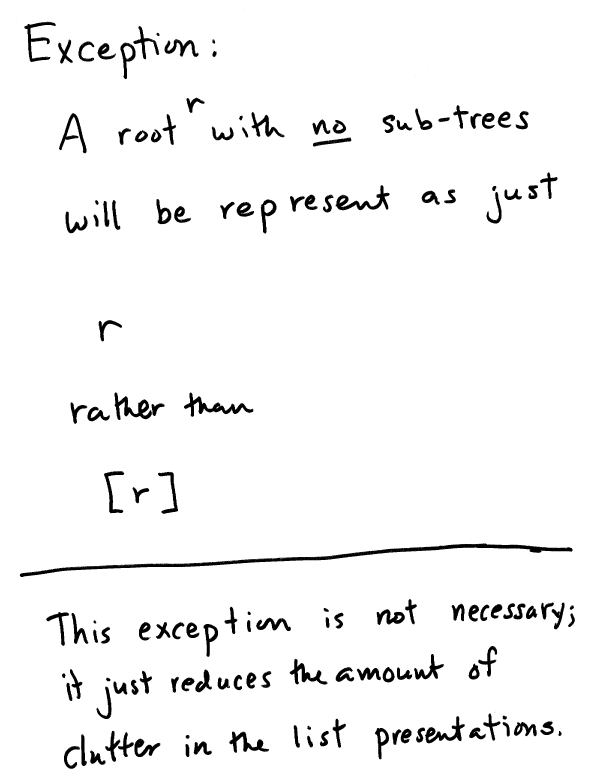 Exception:
A root r with no sub-trees
will be represent as just
r
rather than
[r]
This exception is not necessary;
it just reduces the amount of
clutter in the list presentations.